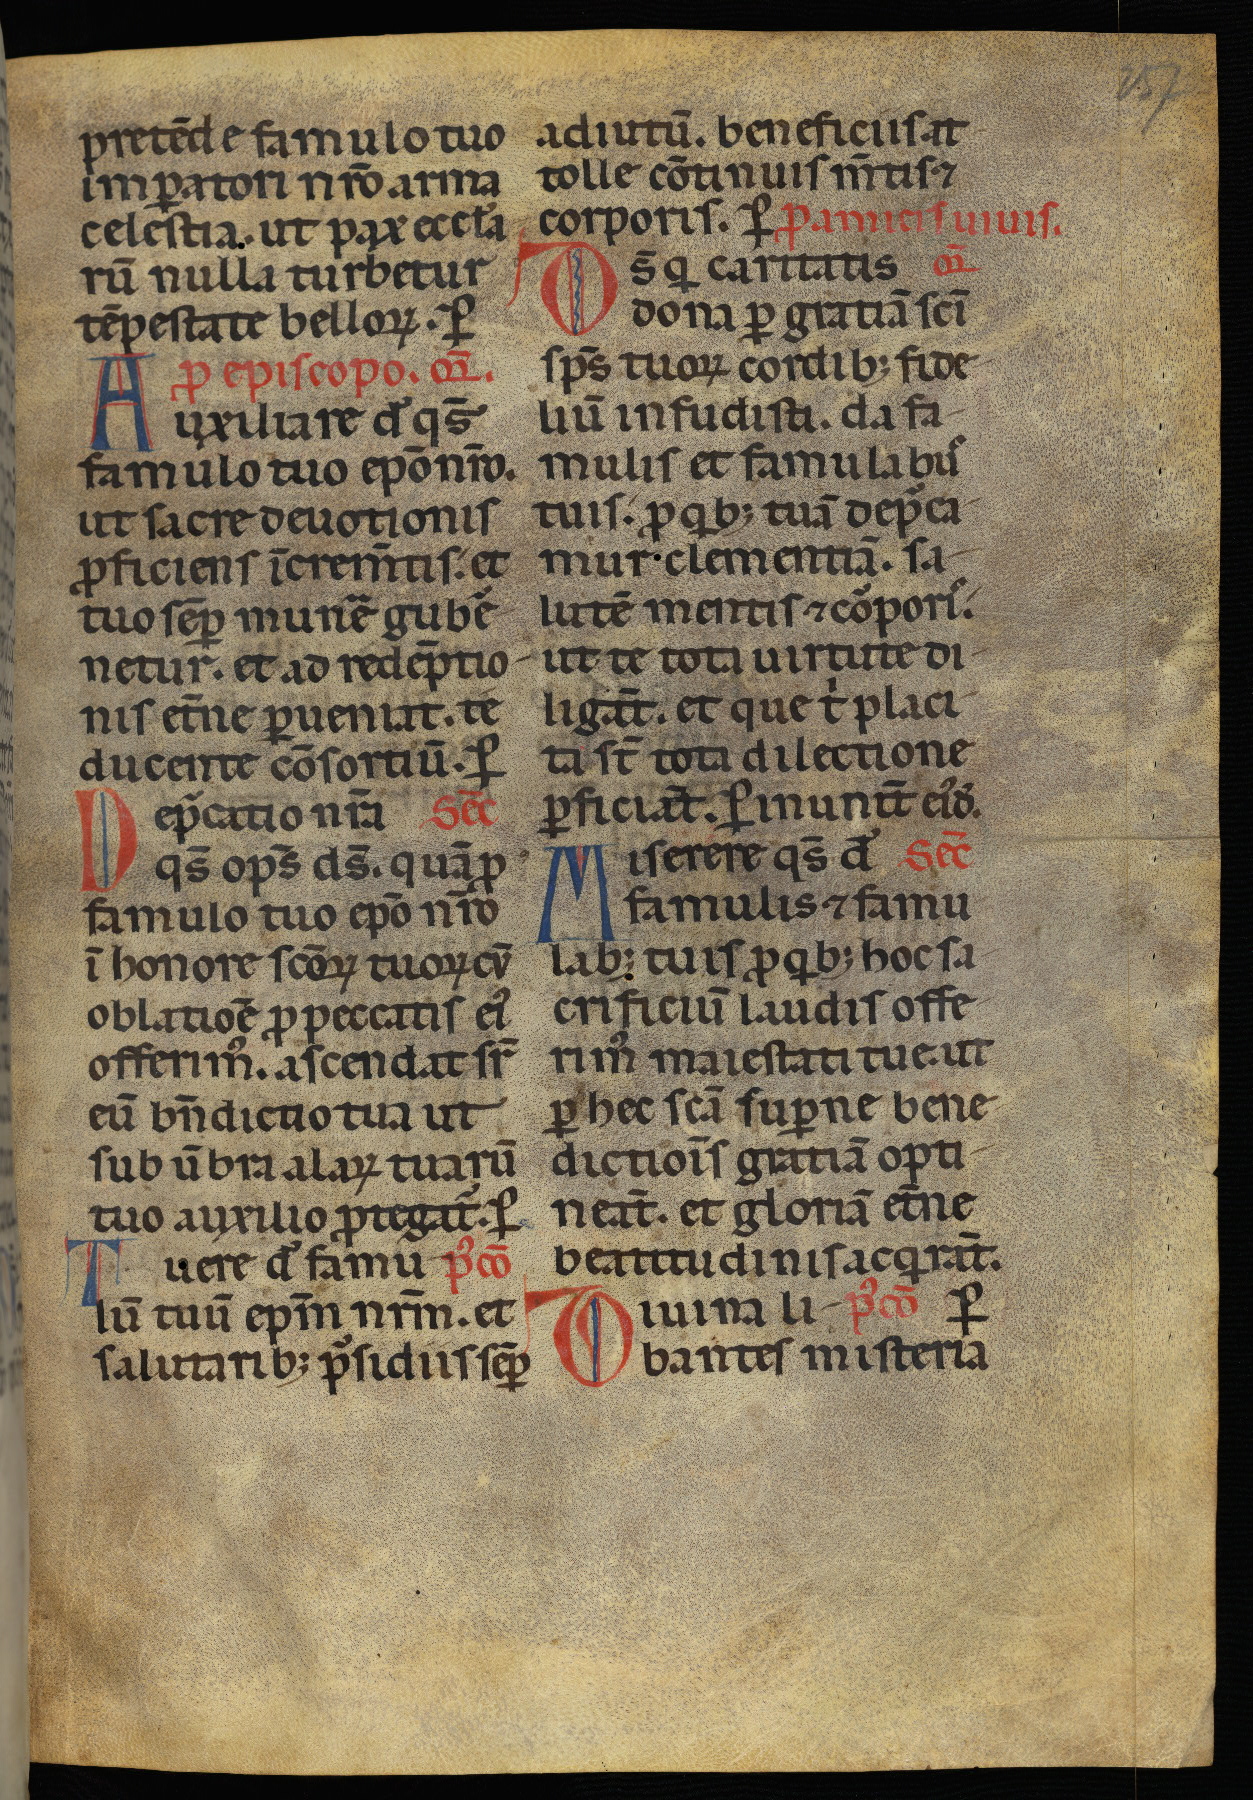 257
pretēde famulo tuo
imꝑatori nr̄o arma
celēstia. ut pax eccl̄a
rū nulla turbetur
tēpestate belloꝝ. P̱
ꝓ episcopo. or̄.
Auxiliare d̄s qs̄
famulo tuo ep̄o nr̄o.
ut sacre deuotionis
ꝓficiens īcrem̄tis. et
tuo sēꝑ munē gubē
netur. et ad redēptio
nis et̄ne ꝑueniat. te
ducente cōsortiū. P̱
Dep̄catio nr̄a Sec̄
qs̄ op̄s ds̄. quā ꝓ
famulo tuo ep̄o nr̄o
ī honore sc̄oꝝ tuoꝝ cū
oblatiōe ꝓ peccatis ei᷒
offerim᷒. ascendat sr̄
eū bn̄dictio tua ut
sub ūbra alaꝝ tuarū
tuo auxilio ꝓtegat᷑. P̱
Tuere d᷒ famu p᷒cō
lū tuū ep̄m nr̄m. et
salutarib; p̄sidiis sēꝑ
adiutū. beneficiis at
tolle cōtinuis m̄tis ⁊
corporis. P̱ ꝓ amicis uiuis.
Ds̄ q̇ caritatis or̄
dona ꝑ gratiā sc̄i
sp̄s tuoꝝ cordib; fide
liū infudisti. da fa
mulis et famulabus
tuis. ꝓ q̇b; tuā dep̄ca
mur clementiā. sa
lutē mentis ⁊ cōporis.
ut te tota uirtute di
ligāt. et que ṫ placi
ta st̄ tota dilectione
ꝑficiāt. P̱ in unit̄ ei᷒d̄.
Miserere qs̄ d᷒ Sec̄
famulis ⁊ famu
lab; tuis ꝓ q̇b; hoc sa
crificiū laudis offe
rim᷒ maiestati tue. ut
ꝑ hec sc̄a suꝑne bene
dictiōis gratiā opti
neāt. et gloriā et̄ne
beatitudinis acq̇rāt.
Diuina li p᷒cō P̱
bantes misteria